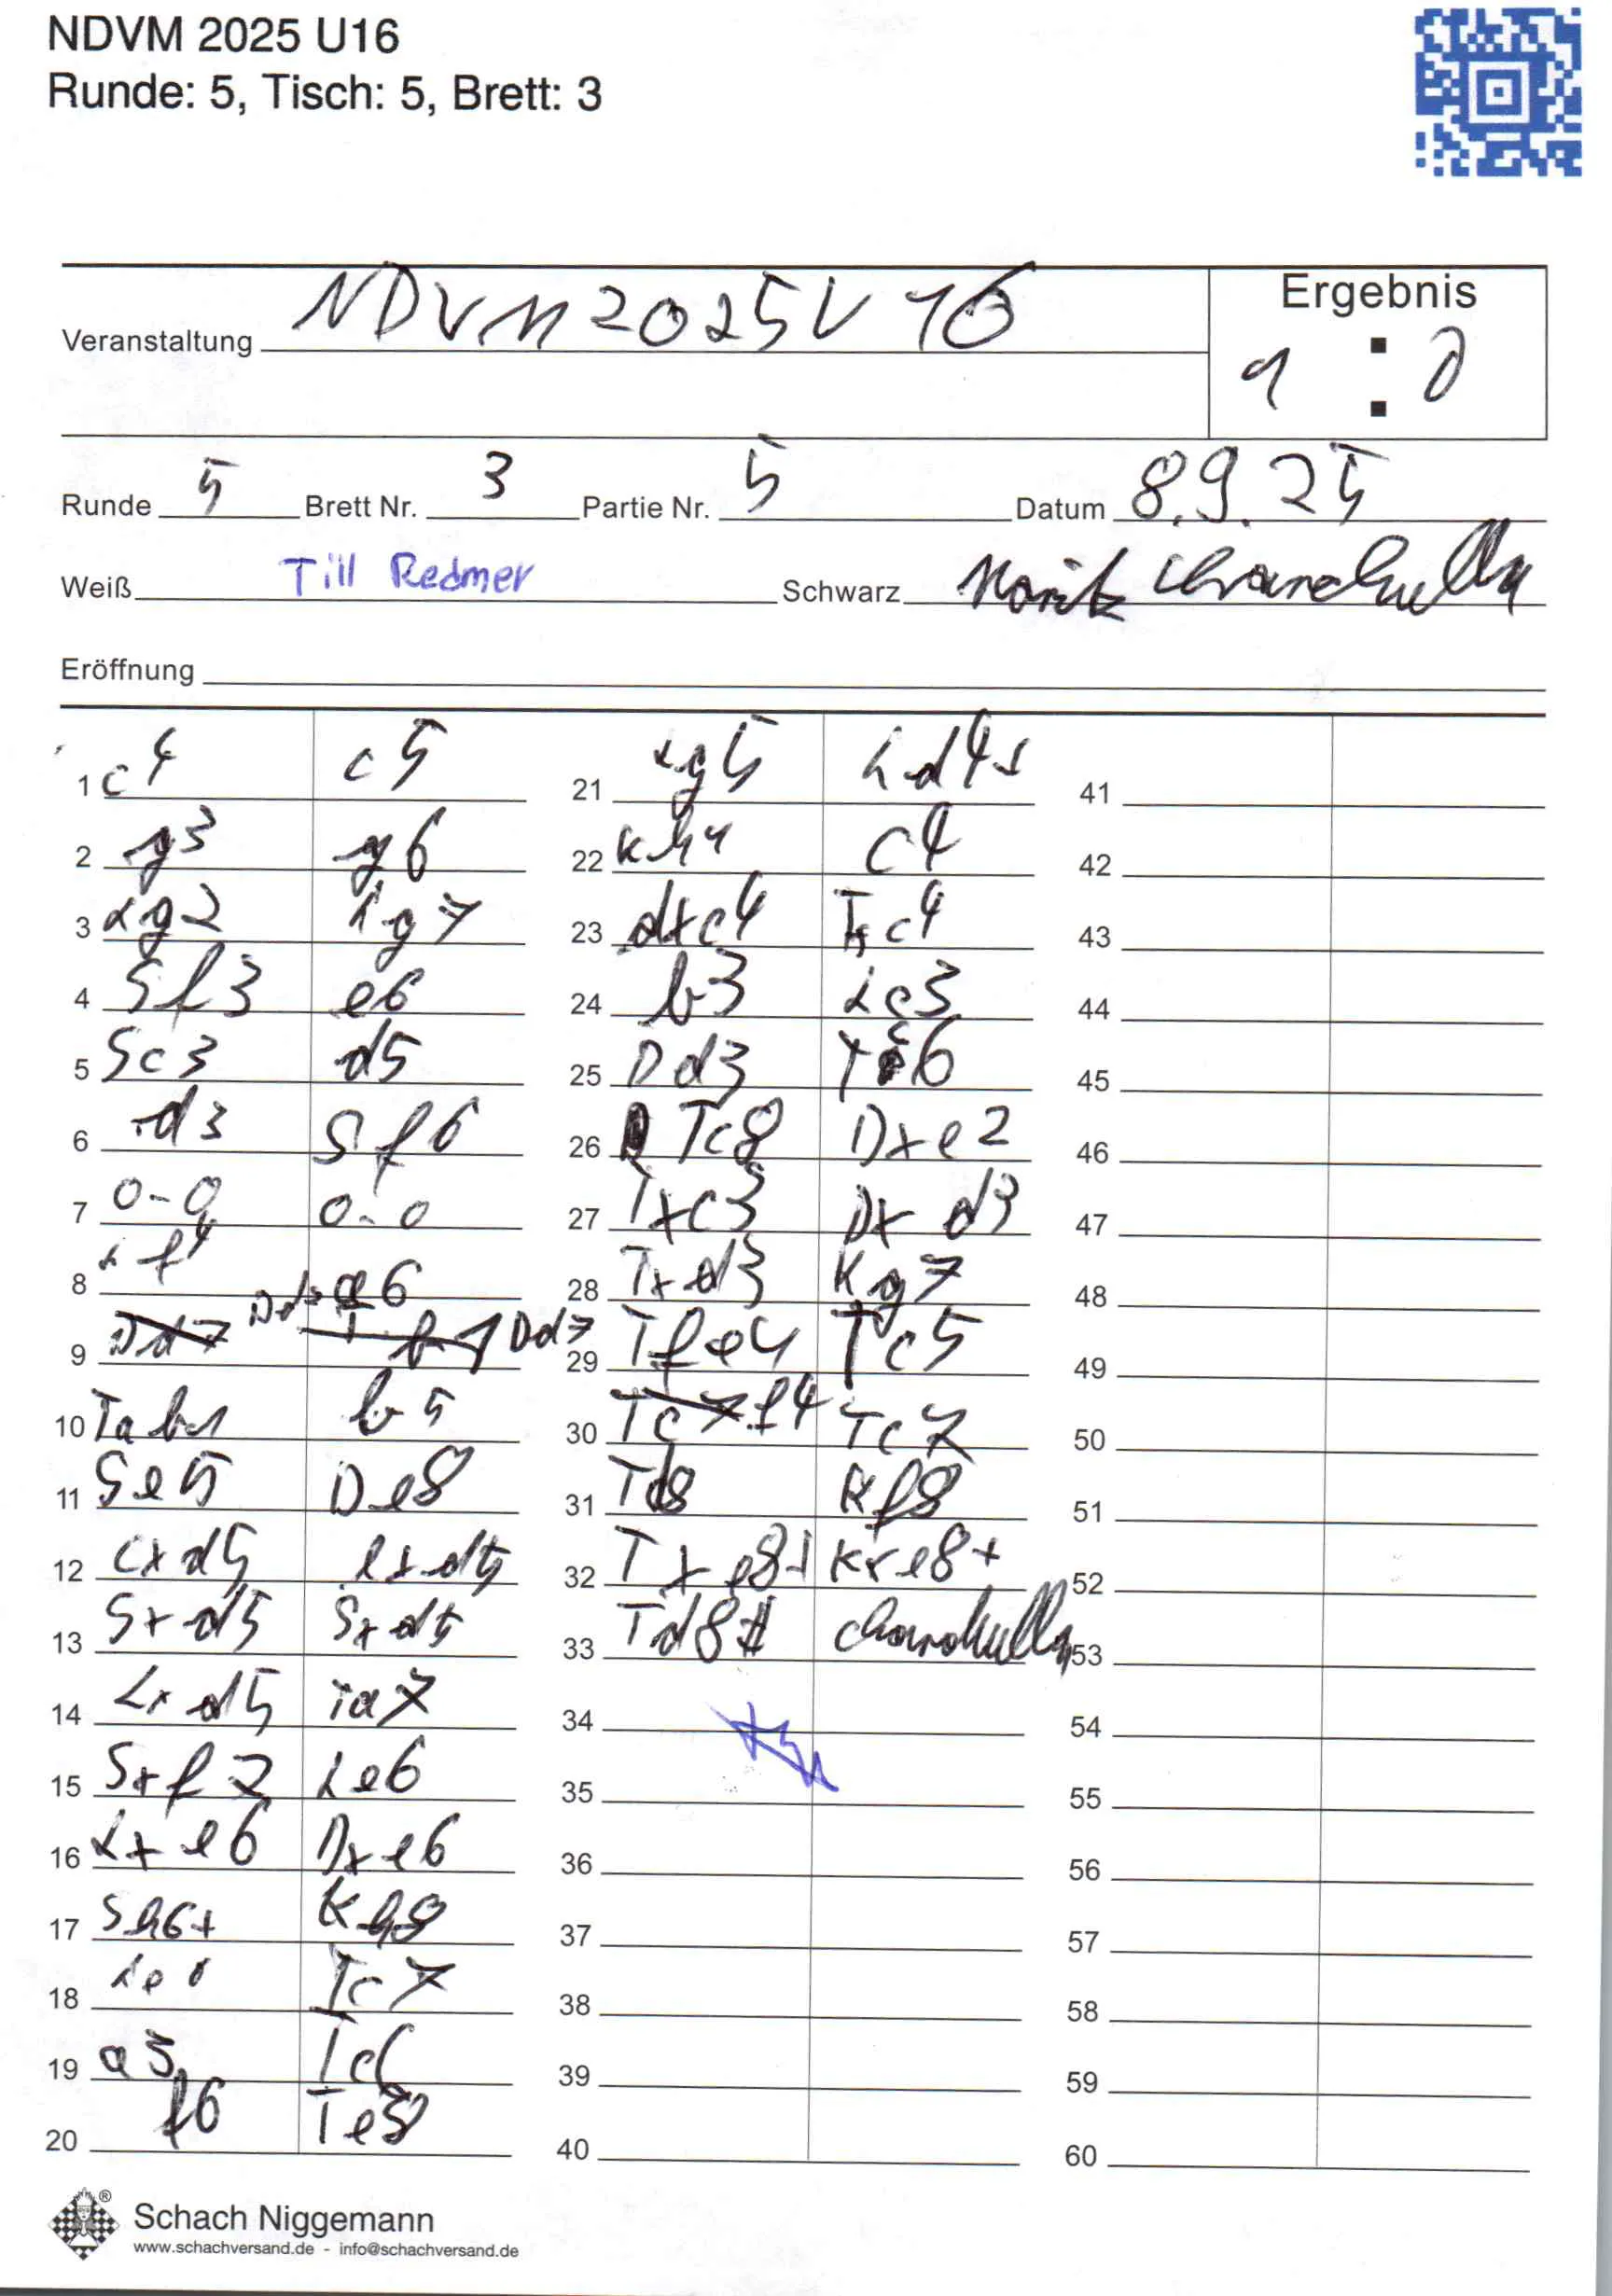 NDVM 2025 U16
Runde: 5, Tisch: 5, Brett: 3
Veranstaltung NDVM 2025 U 16
Ergebnis
1 : 0
Runde 5 Brett Nr. 3 Partie Nr. 5 Datum 8.9.25
Weiß Till Redmer Schwarz
Eröffnung
1 c4 c5
2 g3 g6
3 Lg2 Lg7
4 Sf3 e6
5 Sc3 d5
6 d3 Sf6
7 0-0 0-0
8 Lf4 a6
9 Dd2 Dd7
10 Tab1 b5
11 Se5 De8
12 cxd5 exd5
13 Sxd5 Sxd5
14 Lxd5 Ta7
15 Sxf7 Le6
16 Lxe6 Dxe6
17 Sh6+ Kh8
18 Tc7
19 a3 Tc6
20 f6 Te8
21 Lg5 Ld4+
22 Kh1 c4
23 dxc4 Txc4
24 b3 Lc3
25 Dd3 Tc6
26 Tc8 Dxe2
27 Txc3 Dxd3
28 Txd3 Kg7
29 Tfe1 Tc5
30 f4 Tc7
31 Td8 Kf8
32 Txe8+ Kxe8+
33 Td8#
34
35
36
37
38
39
40
41
42
43
44
45
46
47
48
49
50
51
52
53
54
55
56
57
58
59
60
Schach Niggemann
www.schachversand.de - info@schachversand.de